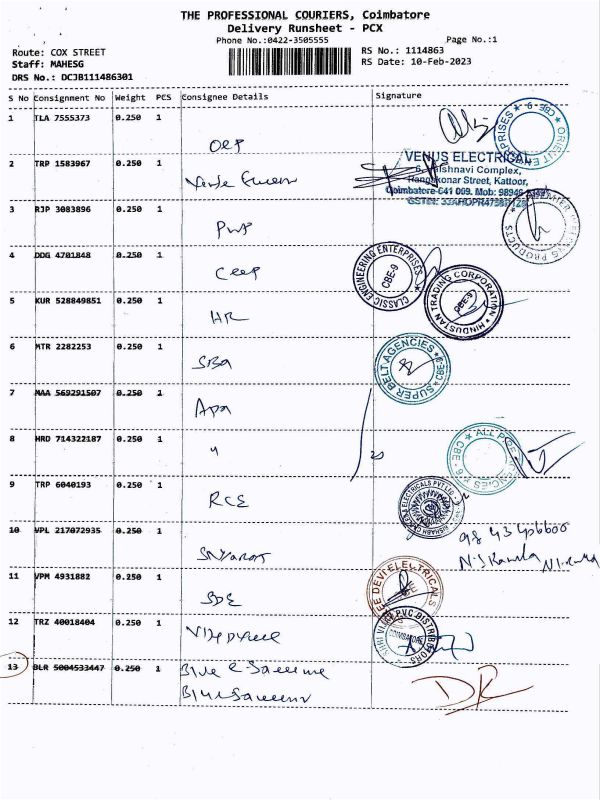 THE PROFESSIONAL COURIERS, Coimbatore
Delivery Runsheet - PCX
Phone No.:0422-3505555
Page No.:1
Route: COX STREET
RS No.: 1114863
Staff: MAHESG
RS Date: 10-Feb-2023
DRS No.: DCJB111486301
S No Consignment No Weight PCS Consignee Details Signature
1 TLA 7555373 0.250 1
OEP
ORIENT ENTERPRISES ★ CBE-9 ★
2 TRP 1583967 0.250 1
VENUS ELECTRICAL
6, Vaishnavi Complex,
Rangakonar Street, Kattoor,
Coimbatore-641 009. Mob: 98946
3 RJP 3083896 0.250 1
PWP
PRODUCTS
4 DDG 4701848 0.250 1
CEEP
CLASSIC ENGINEERING ENTERPRISES
CBE-9
5 KUR 528849851 0.250 1
HR
HINDUSTAN TRADING CORPORATION
CBE-9
6 MTR 2282253 0.250 1
SBA
SUPER BELT AGENCIES ★ CBE-9
7 MAA 569291507 0.250 1
APA
8 HRD 714322187 0.250 1
"
9 TRP 6040193 0.250 1
RCE
10 VPL 217072935 0.250 1
11 VPM 4931882 0.250 1
SDE
DEVI ELECTRICALS
12 TRZ 40018404 0.250 1
PVC DISTRIBUTORS
COIMBATORE
13 BLR 5004533447 0.250 1
DR